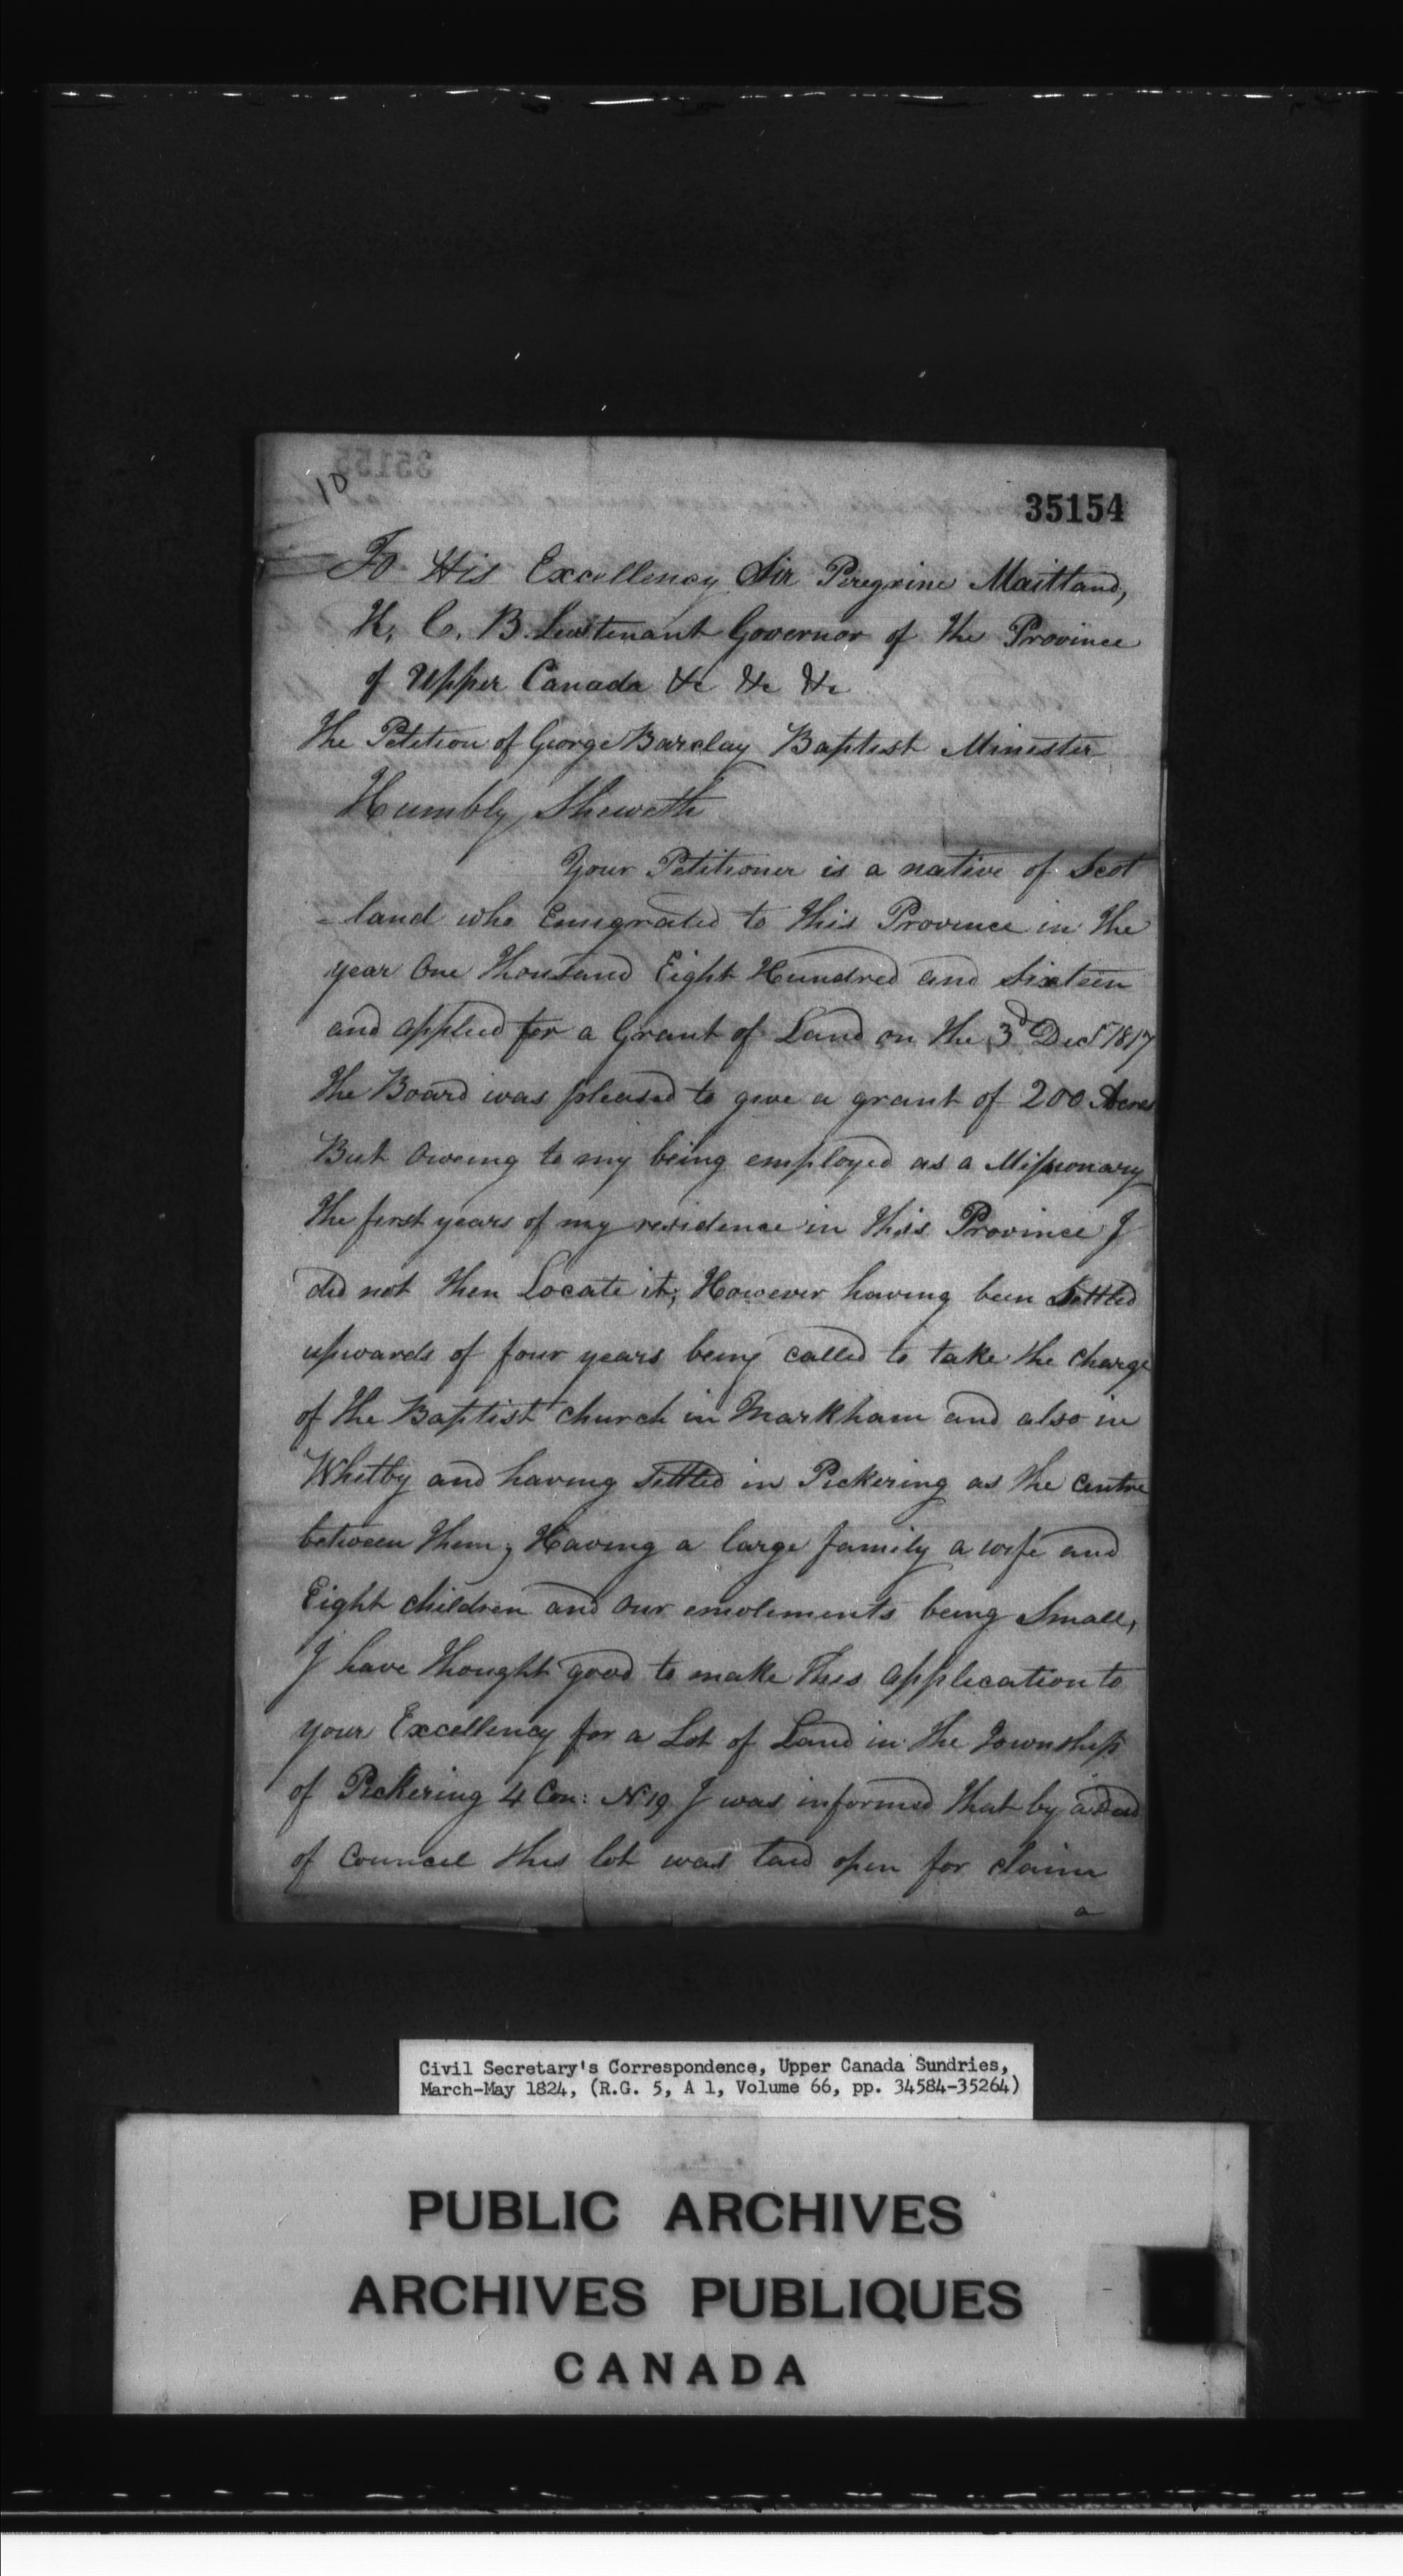 35155
10
35154
To His Excellency Sir Peregrine Maitland,
K. C. B. Lieutenant Governor of the Province
of Upper Canada &c &c &c
The Petition of George Barclay Baptist Minister
Humbly Sheweth
Your Petitioner is a native of Scot
-land who Emigrated to this Province in the
year One Thousand Eight Hundred and Sixteen
and applied for a Grant of Land on the 3d Decr 1817
the Board was pleased to give a grant of 200 Acres
But oweing to my being employed as a Missionary
the first years of my residence in this Province I
did not then Locate it; However having been Settled
upwards of four years being called to take the charge
of the Baptist church in Markham and also in
Whitby and having settled in Pickering as the Centre
between them; Having a large family a wife and
Eight children and our emoluments being Small,
I have thought good to make this application to
your Excellency for a Lot of Land in the Township
of Pickering 4 Con: N 19 I was informed that by
of Council this lot was laid open for claim
a
Civil Secretary's Correspondence, Upper Canada Sundries,
March-May 1824, (R.G. 5, A 1, Volume 66, pp. 34584-35264)
PUBLIC ARCHIVES
ARCHIVES PUBLIQUES
CANADA